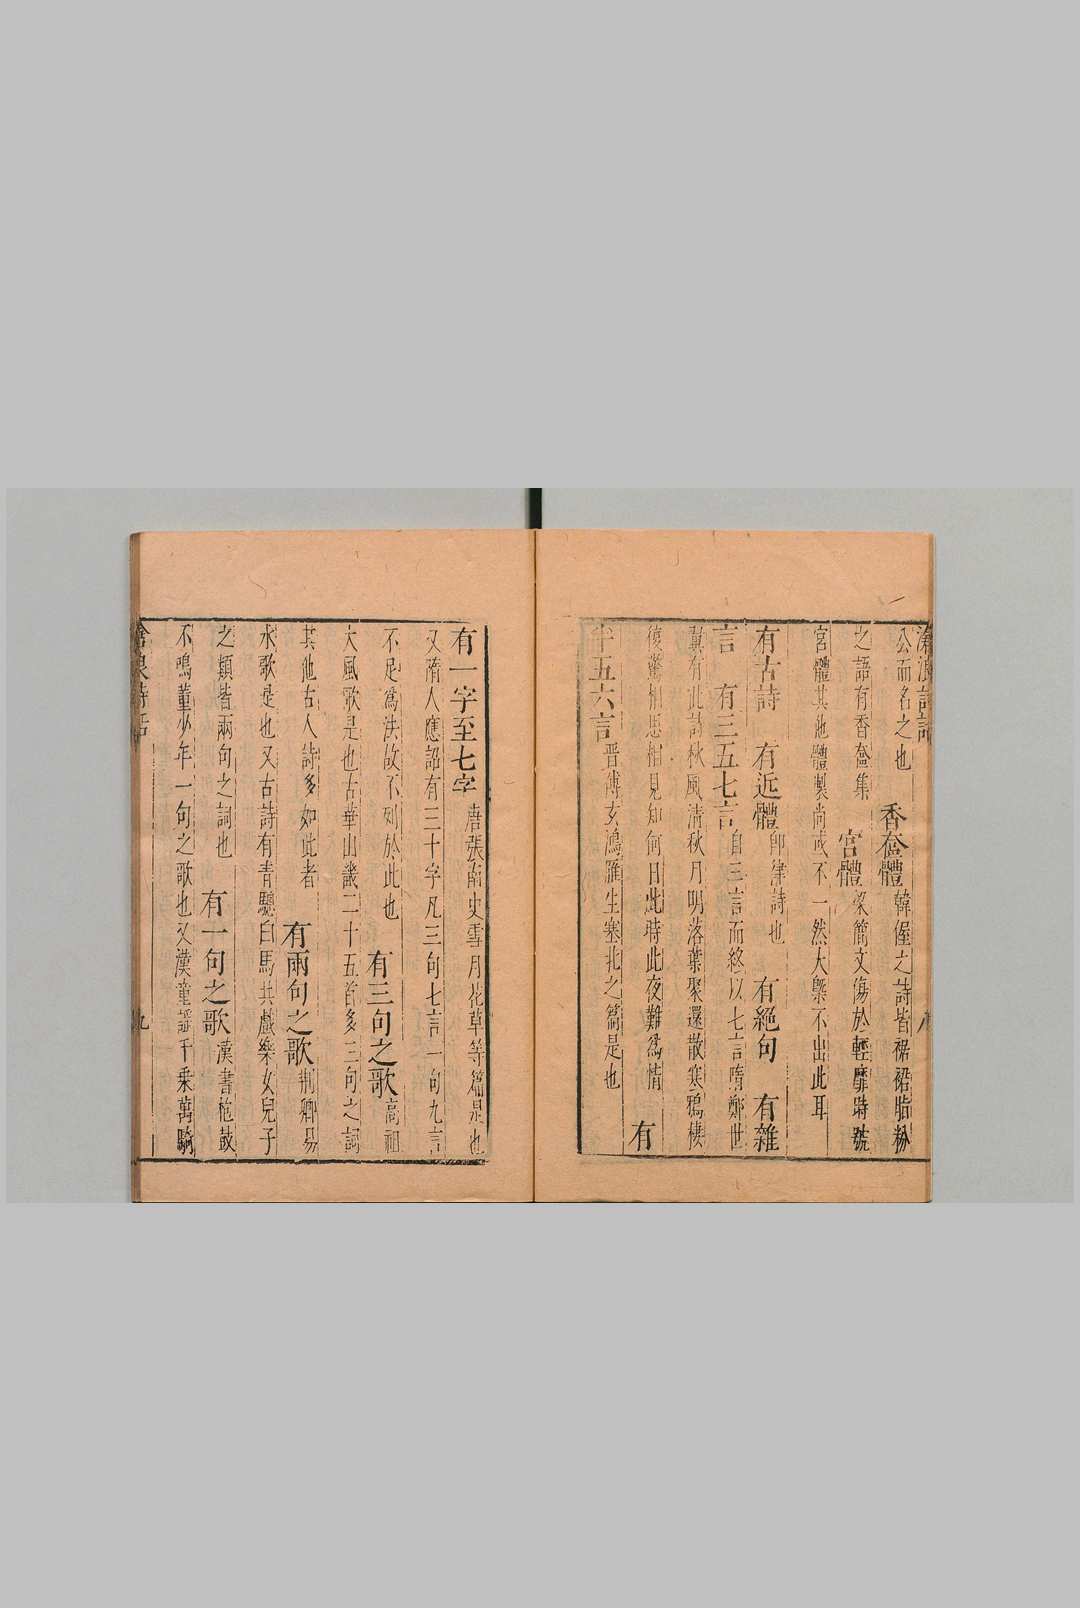 滄浪詩話 八
公而名之也 香奩體韓偓之詩皆裾裙脂粉
之語有香奩集 宮體梁簡文傷於輕靡時號
宮體其他體製尚或不一然大槩不出此耳
有古詩 有近體即律詩也 有絕句 有雜
言 有三五七言自三言而終以七言隋鄭世
翼有此詩秋風清秋月明落葉聚還散寒鴉棲
復驚相思相見知何日此時此夜難為情 有
半五六言晋傅玄鴻鴈生塞北之篇是也
有一字至七字唐張南史雪月花草等篇是也
又隋人應詔有三十字凡三句七言一句九言
不足為法故不列於此也 有三句之歌高祖
大風歌是也古華山畿二十五首多三句之詞
其他古人詩多如此者 有兩句之歌荆卿易
水歌是也又古詩有青驄白馬共戲樂女兒子
之類皆兩句之詞也 有一句之歌漢書枹鼓
不鳴董少年一句之歌也又漢童謠千乘萬騎
滄浪詩話 九